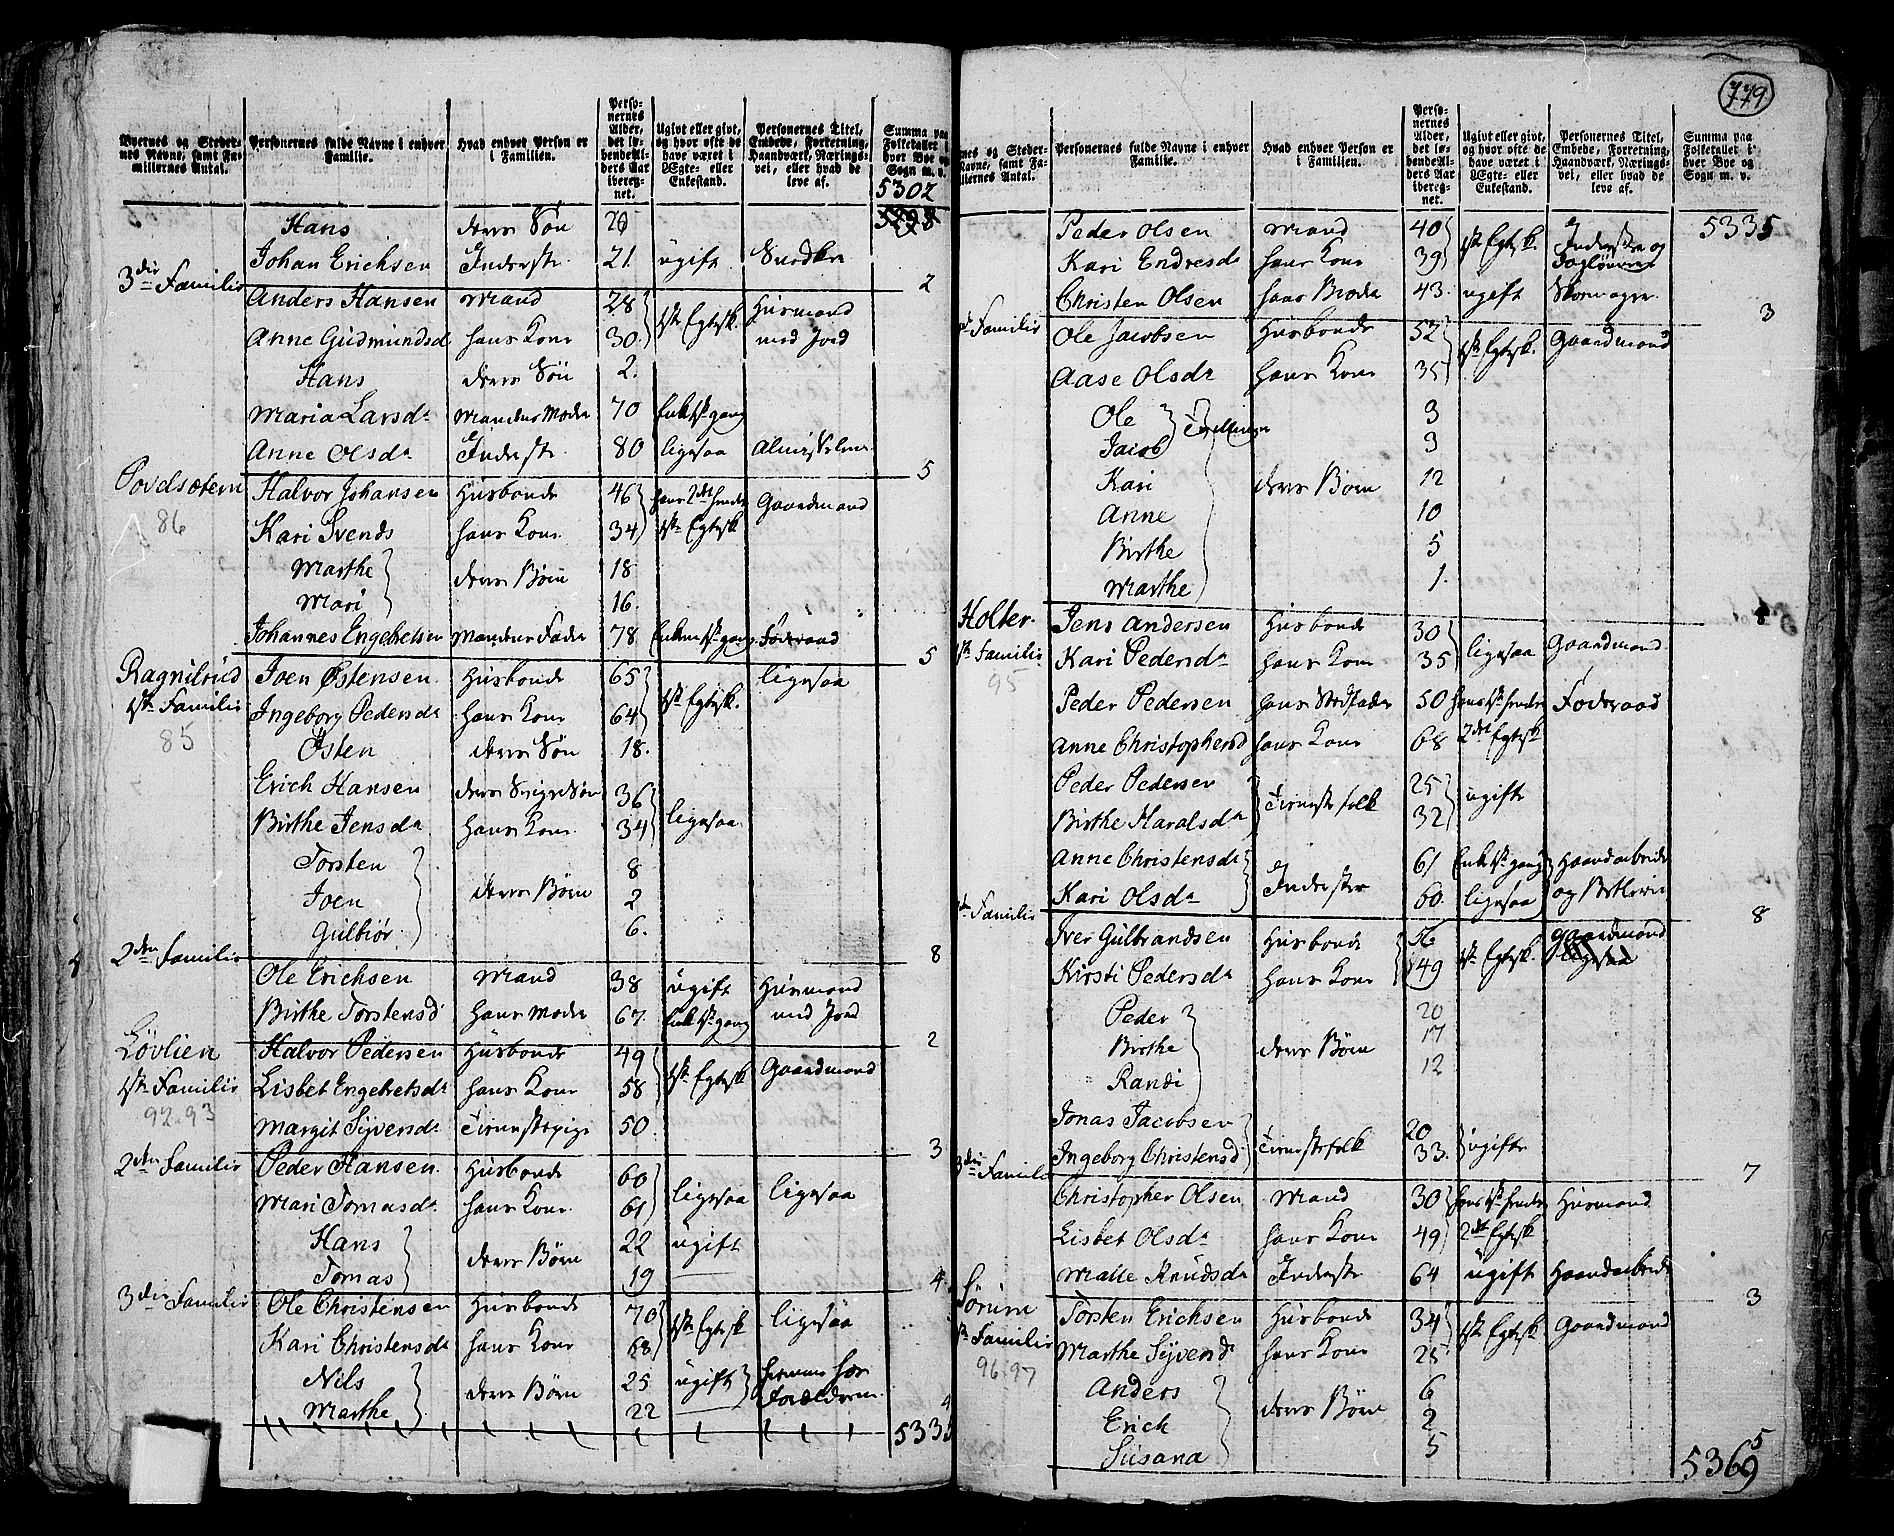 779
Byernes og Steder-
nes Navne, samt Fa-
miliernes Antal.
Personernes fulde Navne i enhver
Familie.
Hvad enhver Person er
i Familien.
Perso-
nernes
Alder,
det lø-
bende Al-
ders Aar
ibereg-
net.
Ugivt eller givt,
og hvor ofte de
have været i
Ægte- eller
Enkestand.
Personernes Titel,
Embede, Forretning,
Haandværk, Nærings-
vei, eller hvad de
leve af.
Summa paa
Folketallet i
hver Bye og
Sogn m. v.
5302
Hans deres Søn 26
Johan Erichsen Inderste 21. ugift
2
3die Familie
Anders Hansen Mand 28 1ste Egtesk. Huusmand
Anne Gudmundsd hans Kone 30. med Jord
Hans deres Søn 2.
Maria Larsdr Mandens Moder 70 Enke 1ste gang
Anne Olsdr Inderste 80 ligesaa
5
Povelsætern Halvor Johansen Husbonde 46 hans 2det hendes Gaardmand
86
Kari Svends hans Kone 34 1ste Egtesk.
Marthe 18
deres Børn
Mari 16.
Johannes Engebretsen Mandens Fader 78 Enkem. 1ste gang Føderaad
5
Ragnilrud Joen Østensen Husbonde 65 ligesaa
1ste Familie Ingeborg Pedersdr hans Kone 64 1ste Egtesk.
85
Østen deres Søn 18.
Erich Hansen 36
Birthe Jensdr hans Kone 34 ligesaa
Torsten 8
Joen deres Børn 2
Gulbiør 6.
8
2den Familie
Ole Erichsen Mand 38 ugift Huusmand
Birthe Torstensd hans Moder 67. Enke 1ste gang med Jord
2
Løvlien Halvor Pedersen Husbonde 49 1ste Egtesk Gaardmand
1ste Familie Lisbet Engebretsdr hans Kone 58
92.93
Margit Syversdr Tienestepige 50
3
2den Familie Peder Hansen Husbonde 60 ligesaa ligesaa
Mari Tomasdr hans Kone 61
Hans 22 ugift
deres Børn
Tomas 19
4.
3die Familie Ole Christensen Husbonde 70 1ste Egtesk ligesaa
Kari Christensdr hans Kone 68
Nils 25 ugift hiemme hos
deres Børn
Marthe 22 Forældrene
4
5335
Byernes og Steder-
nes Navne, samt Fa-
miliernes Antal.
Personernes fulde Navne i enhver
Familie.
Hvad enhver Person er
i Familien.
Perso-
nernes
Alder,
det lø-
bende Al-
ders Aar
ibereg-
net.
Ugivt eller givt,
og hvor ofte de
have været i
Ægte- eller
Enkestand.
Personernes Titel,
Embede, Forretning,
Haandværk, Nærings-
vei, eller hvad de
leve af.
Summa paa
Folketallet i
hver Bye og
Sogn m. v.
5335
Peder Olsen Mand 40 1ste Egtesk. Inderste og
Kari Endresdr hans Kone 39
Christen Olsen hans Broder 43. ugift Skomager
3
Familie
Ole Jacobsen Husbonde 52 1ste Egtesk. Gaardmand
Aase Olsdr hans Kone 35
Ole 3
Tvillinger
Jacob 3
Kari deres Børn 12
Anne 10
Birthe 5
Marthe 1.
8
Holter. Jens Andersen Husbonde 30 ligesaa Gaardmand
1ste Familie Kari Pedersdr hans Kone 35
95
Peder Pedersen hans Stedfader 50 hans 1ste hendes Føderaad
Anne Christophersd hans Kone 68 2det Egtesk
Peder Pedersen 25
Tienestefolk ugifte
Birthe Haralsdr 32
Anne Christensdr 61 Enke 1ste gang Haandarbeide
Inderster
Kari Olsdr 60. ligesaa og Betlerie
8
Familie
Iver Gulbrandsen Husbonde 56 1ste Egtesk. Gaardmand
Kirsti Pedersdr hans Kone 49
Peder 20
Birthe deres Børn 17
Randi 12
Jonas Jacobsen 20
Tienestefolk ugifte
Ingeborg Christensd 33.
7
3die Familie
Christopher Olsen Mand 30 hans 1ste hendes Huusmand
Lisbet Olsdr hans Kone 49 2det Egtesk
Malle Knudsdr Inderste 64 ugift Haandarbeide
3
Sørum Torsten Erichsen Husbonde 34 1ste Egtesk Gaardmand
1ste Familie Marthe Syversdr hans Kone 28
96.97
Anders 6
Erich deres Børn 2
Susana 5
5
5369